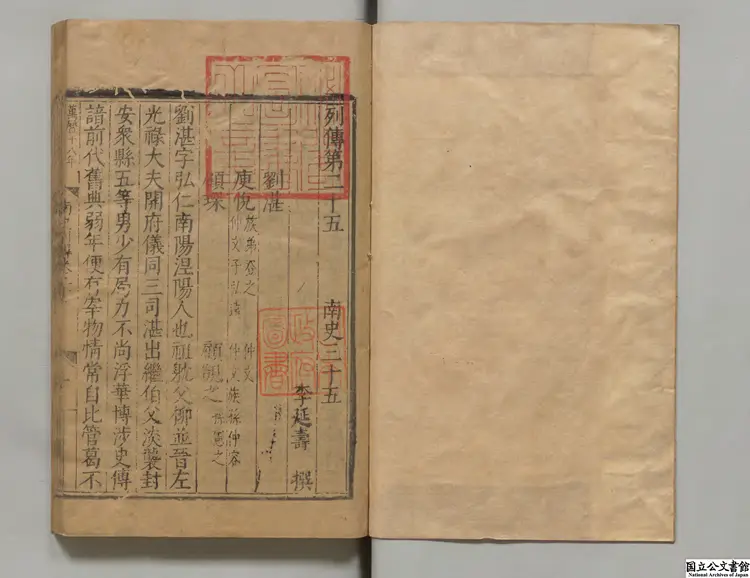 列傳第二十五 南史三十五
李延壽 撰
劉湛
庾悅 族弟登之 仲文
仲文子弘遠 仲文族孫仲容
顧琛 顧覬之 孫憲之
劉湛字弘仁南陽涅陽人也祖躭父柳並晉左
光祿大夫開府儀同三司湛出繼伯父淡襲封
安衆縣五等男少有局力不尚浮華博涉史傳
諳前代舊典弱年便有宰物情常自比管葛不
国立公文書館
National Archives of Japan